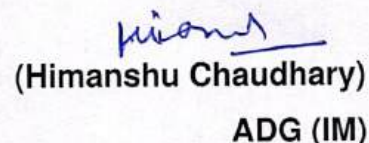 (Himanshu Chaudhary)
ADG (IM)